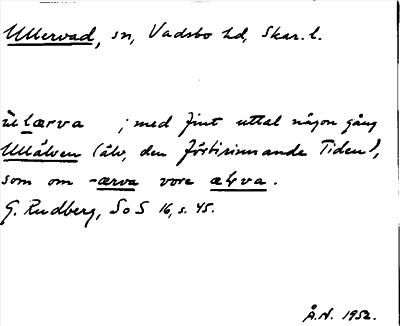 Ullervad, sn, Vadsbo hd, Skar. l.
ùlærva ; med fint uttal någon gång
Ullälven (älv, den förbirinnande Tidan),
som om -ærva vore ælva.
G. Rudberg, SoS 16, s. 45.
Å.N. 1952.